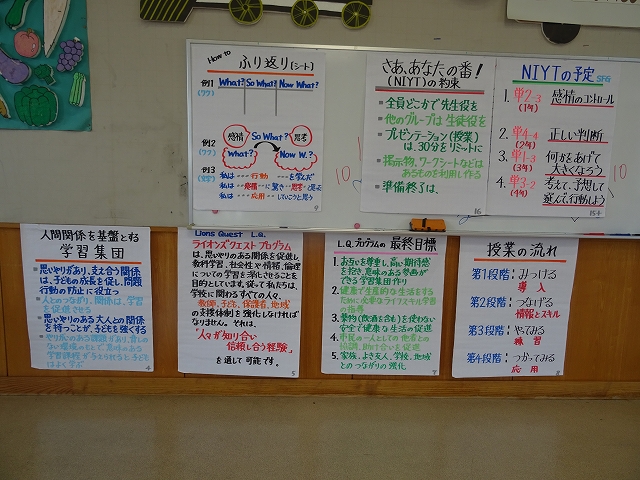 How to
ふり返り(シート)
例1 What? So What? Now What?
(ワク)
例2 感情 So What? 思考
(ワク) What? Now W.?
例3 私は……行動……を学んだ
私は
私は……応用……していこうと思う
9
さあ、あなたの番!
(NIYT)の約束
全員どこかで先生役を
他のグループは生徒役を
プレゼンテーション(授業)
は、30分をリミートに
掲示物、ワークシートなどは
あるものを利用し作る
準備終了は、
16
NIYTの予定 SFG
1. 単2-3 感情のコントロール
(1年)
2. 単4-4 正しい判断
(2年)
3. 単1-3 何かをあげて
(3年) 大きくなろう
4. 単3-2 考えて、予想して
(4年) 選んで、行動しよう
15-4
10
人間関係を基盤とする
学習集団
思いやりがあり、支え合う関係
は、子どもの成長を促し、問題
行動の防止に役立つ
人とのつながり、関係は、学習
を促進させる
思いやりのある大人との関係
を持つことが、子どもを強くする
やり甲斐のある課題があり、脅しの
ない環境のもとで意味のある
学習課程が与えられると子ども
はよく学ぶ
4
Lions Quest L.Q.
ライオンズクエストプログラム
は、思いやりのある関係を促進し、
教科学習、社会性や情緒、倫理
についての学習を消化させることを
目的としています。従って私たちは、
学校に関わるすべての人々、
教師、子ども、保護者、地域
の支援体制を強化しなければ
なりません。それは、
「人々が知り合い
信頼し合う経験」
を通して可能です。
5
L.Q.プログラムの最終目標
1. お互いを尊重し、高い期待感
を抱き、意味のある参画が
できる学習集団作り
2. 健康で生産的な生活をする
ために大事なライフスキル学習
の指導
3. 薬物(飲酒を含む)を使わない
安全で健康な生活の促進
4. 市民の一人としての他者との
協調、助け合いを促進
5. 家族、よき友人、学校、地域
とのつながりの強化
7
授業の流れ
第1段階:みつける
導入
第2段階:つなげる
情報とスキル
第3段階:やってみる
練習
第4段階:つかってみる
応用
8